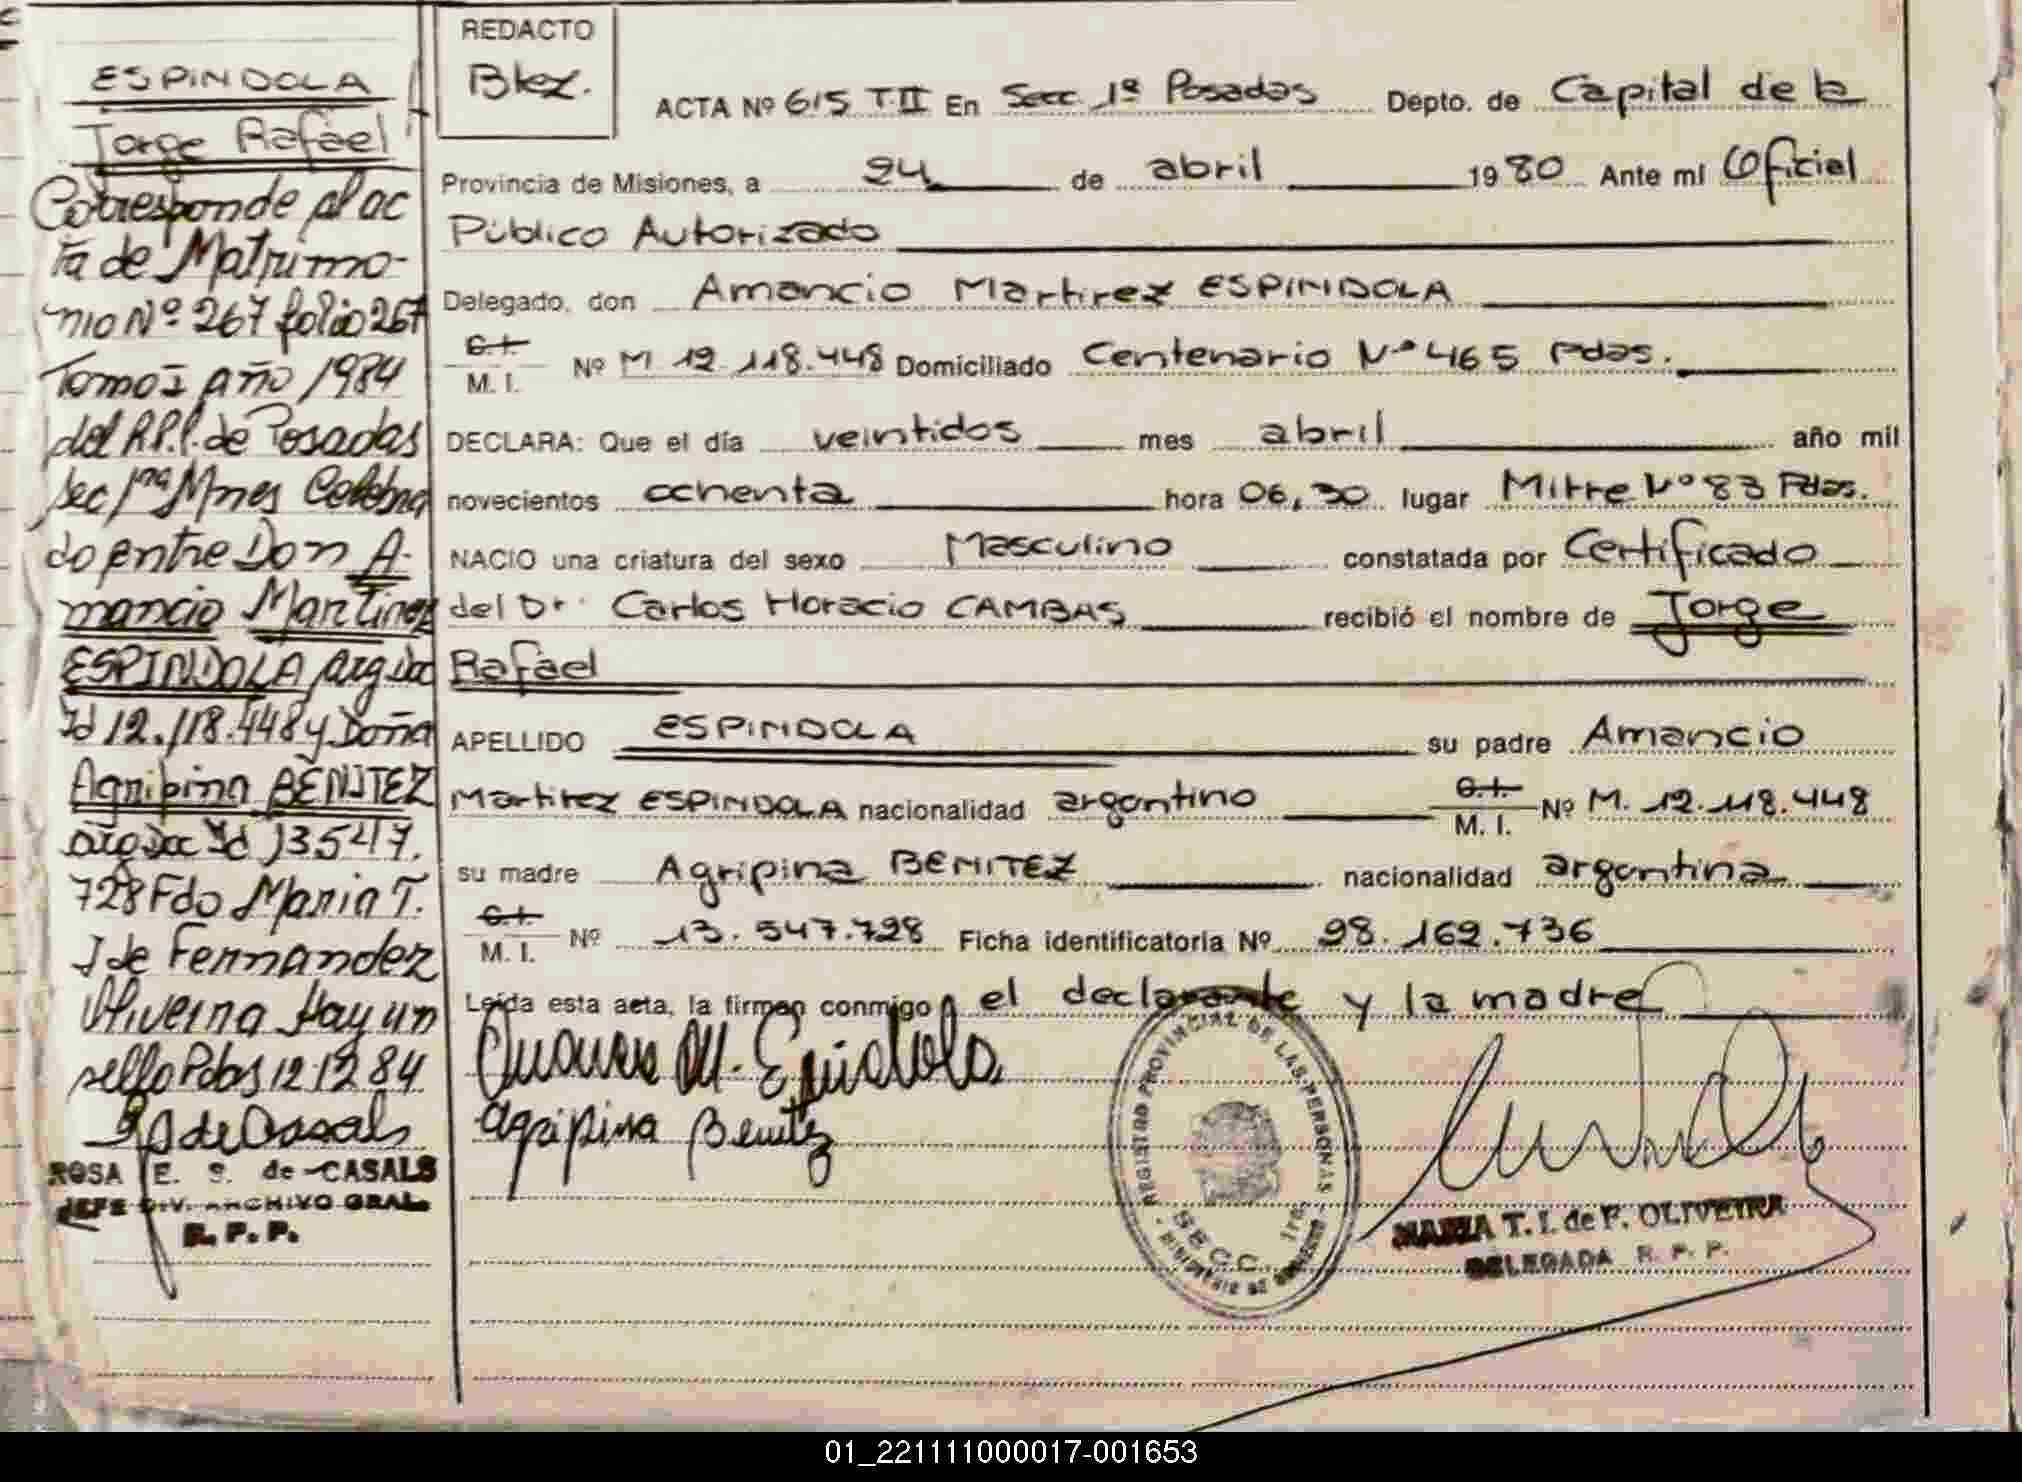 ESPINDOLA
Jorge Rafael
Corresponde al ac
ta de Matrimo-
nio Nº 267 folio 267
Tomo I año 1984
del R.P.P. de Posadas
sec 1ra Mnes Celebra
do entre Don A-
mancio Martirez
ESPINDOLA arg doc
Id 12.118.448 y Doña
Agripina BENITEZ
arg doc Id 13547.
728 Fdo Maria T.
I de Fernandez
Oliveira Hay un
sello Pdas 12 12 84
de Casals
ROSA E. S. de CASALS
JEFE DIV. ARCHIVO GRAL.
R. P. P.
REDACTO
Blez.
ACTA Nº 615 T.II En Secc. 1ª Posadas Depto. de Capital de la
Provincia de Misiones, a 24 de abril 1980 Ante mi Oficial
Público Autorizado
Delegado, don Amancio Martirez ESPINDOLA
C.I.
M. I. Nº M 12.118.448 Domiciliado Centenario Nº 465 Pdas.
DECLARA: Que el día veintidos mes abril año mil
novecientos ochenta hora 06,30 lugar Mitre Nº 83 Pdas.
NACIO una criatura del sexo Masculino constatada por Certificado
del Dr. Carlos Horacio CAMBAS recibió el nombre de Jorge
Rafael
APELLIDO ESPINDOLA su padre Amancio
Martirez ESPINDOLA nacionalidad argentino C.I. M. I. Nº M. 12.118.448
su madre Agripina BENITEZ nacionalidad argentina
C.I.
M. I. Nº 13.547.728 Ficha identificatoria Nº 98.162.736
Leída esta acta, la firman conmigo el declarante y la madre
M. Espindola
Agripina Benitez
REGISTRO PROVINCIAL DE LAS PERSONAS
SECC. 1ra.
MINISTERIO DE GOBIERNO
MARIA T. I. de F. OLIVEIRA
DELEGADA R. P. P.
01_221111000017-001653